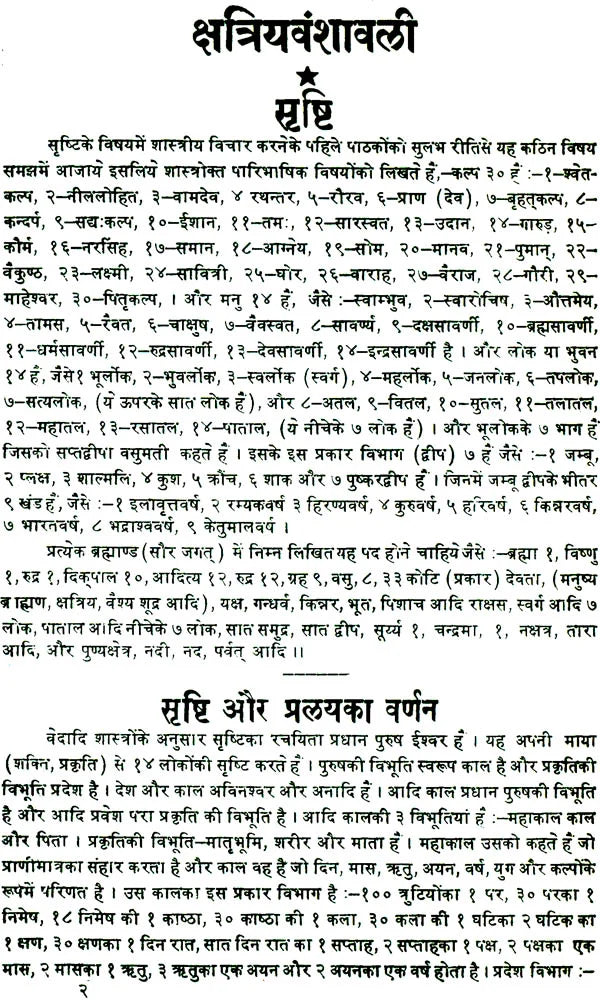 क्षत्रियवंशावली
सृष्टि
सृष्टिके विषयमें शास्त्रीय विचार करनेके पहिले पाठकोंको सुलभ रीतिसे यह कठिन विषय
समझमें आजाये इसलिये शास्त्रोक्त पारिभाषिक विषयोंको लिखते हैं,–कल्प ३० हैं :–१–श्वेत-
कल्प, २–नीललोहित, ३–वामदेव, ४ रथन्तर, ५–रौरव, ६–प्राण (देव), ७–बृहत्कल्प, ८–
कन्दर्प, ९–सद्यःकल्प, १०–ईशान, ११–तमः, १२–सारस्वत, १३–उदान, १४–गारुड़, १५–
कौर्म, १६–नरसिंह, १७–समान, १८–आग्नेय, १९–सोम, २०–मानव, २१–पुमान्, २२–
वैकुण्ठ, २३–लक्ष्मी, २४–सावित्री, २५–घोर, २६–वाराह, २७–वैराज, २८–गौरी, २९–
माहेश्वर, ३०–पितृकल्प, । और मनु १४ हैं, जैसे :–स्वाम्भुव, २–स्वारोचिष, ३–औत्तमेय,
४–तामस, ५–रैवत, ६–चाक्षुष, ७–वैवस्वत, ८–सावर्ण्य, ९–दक्षसावर्णी, १०–ब्रह्मसावर्णी,
११–धर्मसावर्णी, १२–रुद्रसावर्णी, १३–देवसावर्णी, १४–इन्द्रसावर्णी है । और लोक या भुवन
१४ हैं, जैसे१ भूर्लोक, २–भुवर्लोक, ३–स्वर्लोक (स्वर्ग), ४–महर्लोक, ५–जनलोक, ६–तपलोक,
७–सत्यलोक, (ये ऊपरके सात लोक हैं), और ८–अतल, ९–वितल, १०–सुतल, ११–तलातल,
१२–महातल, १३–रसातल, १४–पाताल, (ये नीचेके ७ लोक हैं) । और भूलोकके ७ भाग हैं
जिसको सप्तद्वीपा वसुमती कहते हैं । इसके इस प्रकार विभाग (द्वीप) ७ हैं जैसे :–१ जम्बू,
२ प्लक्ष, ३ शाल्मलि, ४ कुश, ५ क्रौंच, ६ शाक और ७ पुष्करद्वीप हैं । जिनमें जम्बू द्वीपके भीतर
९ खंड हैं, जैसे :–१ इलावृत्तवर्ष, २ रम्यकवर्ष ३ हिरण्यवर्ष, ४ कुरुवर्ष, ५ हरिवर्ष, ६ किन्नरवर्ष,
७ भारतवर्ष, ८ भद्राश्ववर्ष, ९ केतुमालवर्ष ।
प्रत्येक ब्रह्माण्ड (सौर जगत्) में निम्न लिखित यह पद होने चाहिये जैसे :–ब्रह्मा १, विष्णु
१, रुद्र १, दिक्पाल १०, आदित्य १२, रुद्र १२, ग्रह ९, वसु, ८, ३३ कोटि (प्रकार) देवता, (मनुष्य
ब्राह्मण, क्षत्रिय, वैश्य शूद्र आदि), यक्ष, गन्धर्व, किन्नर, भूत, पिशाच आदि राक्षस, स्वर्ग आदि ७
लोक, पाताल आदि नीचेके ७ लोक, सात समुद्र, सात द्वीप, सूर्य्य १, चन्द्रमा, १, नक्षत्र, तारा
आदि, और पुण्यक्षेत्र, नदी, नद, पर्वत् आदि ।।
सृष्टि और प्रलयका वर्णन
वेदादि शास्त्रोंके अनुसार सृष्टिका रचयिता प्रधान पुरुष ईश्वर हैं । यह अपनी माया
(शक्ति, प्रकृति) से १४ लोकोंकी सृष्टि करते हैं । पुरुषकी विभूति स्वरूप काल है और प्रकृतिकी
विभूति प्रदेश है । देश और काल अविनश्वर और अनादि हैं । आदि काल प्रधान पुरुषकी विभूति
है और आदि प्रवेश परा प्रकृति की विभूति है । आदि कालकी ३ विभूतियां हैं :–महाकाल काल
और पिता । प्रकृतिकी विभूति–मातृभूमि, शरीर और माता हैं । महाकाल उसको कहते हैं जो
प्राणीमात्रका संहार करता है और काल वह है जो दिन, मास, ऋतु, अयन, वर्ष, युग और कल्पोंके
रूपमें परिणत है । उस कालका इस प्रकार विभाग है :–१०० त्रुटियोंका १ पर, ३० परका १
निमेष, १८ निमेष की १ काष्ठा, ३० काष्ठा की १ कला, ३० कला की १ घटिका २ घटिक का
१ क्षण, ३० क्षणका १ दिन रात, सात दिन रात का १ सप्ताह, २ सप्ताहका १ पक्ष, २ पक्षका एक
मास, २ मासका १ ऋतु, ३ ऋतुका एक अयन और २ अयनका एक वर्ष होता है । प्रदेश विभाग :–
२